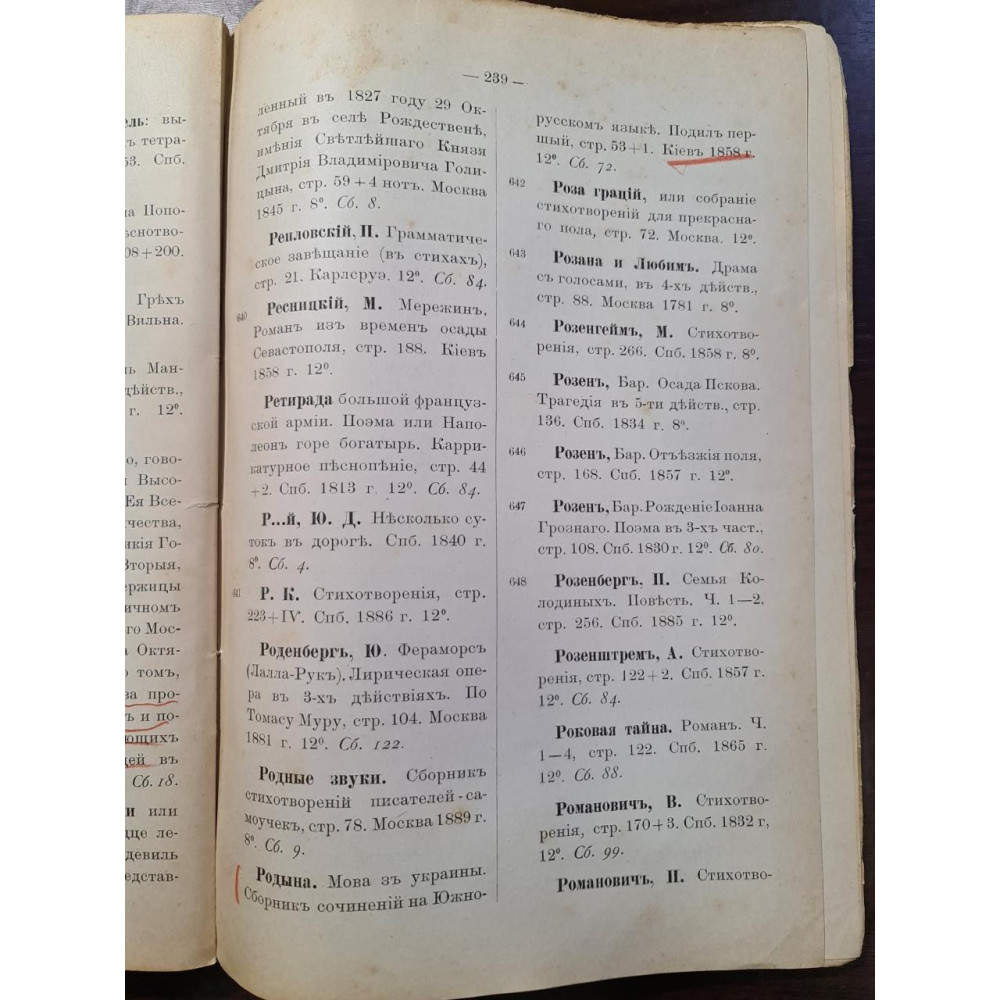 ель: вы-
ъ тетра-
53. Спб.
на Попо-
ѣснотво-
08+200.
Грѣхъ
Вильна.
ь Ман-
дѣйств.,
г. 12⁰.
о, гово-
и Высо-
Ея Все-
чества,
икія Го-
Вторыя,
держицы
ичномъ
го Мос-
а Октя-
о томъ,
ва про-
ъ и по-
ющихъ
дей въ
Сб. 18.
и или
дце ле-
девиль
едстав-
— 239 —
ленный въ 1827 году 29 Ок-
тября въ селѣ Рождественѣ,
имѣнія Свѣтлѣйшаго Князя
Дмитрія Владиміровича Голи-
цына, стр. 59+4 нотъ. Москва
1845 г. 8⁰. Сб. 8.
Репловскій, П. Грамматиче-
ское завѣщаніе (въ стихахъ),
стр. 21. Карлсруэ. 12⁰. Сб. 84.
640 Ресницкій, М. Мережин.
Романъ изъ временъ осады
Севастополя, стр. 188. Кіевъ
1858 г. 12⁰.
Ретирада большой француз-
ской арміи. Поэма или Напо-
леонъ горе богатырь. Карри-
катурное пѣснопѣніе, стр. 44
+2. Спб. 1813 г. 12⁰. Сб. 84.
Р...й, Ю. Д. Нѣсколько су-
токъ въ дорогѣ. Спб. 1840 г.
8⁰. Сб. 4.
641 Р. К. Стихотворенія, стр.
223+IV. Спб. 1886 г. 12⁰.
Роденбергъ, Ю. Фераморсъ
(Лалла-Рукъ). Лирическая опе-
ра въ 3-хъ дѣйствіяхъ. По
Томасу Муру, стр. 104. Москва
1881 г. 12⁰. Сб. 122.
Родные звуки. Сборникъ
стихотвореній писателей-са-
моучекъ, стр. 78. Москва 1889 г.
8⁰. Сб. 9.
Родына. Мова зъ украины.
Сборникъ сочиненій на Южно-
русскомъ языкѣ. Подилъ пер-
шый, стр. 53+1. Кіевъ 1858 г.
12⁰. Сб. 72.
642 Роза грацій, или собраніе
стихотвореній для прекрасна-
го пола, стр. 72. Москва. 12⁰.
643 Розана и Любимъ. Драма
съ голосами, въ 4-хъ дѣйств.,
стр. 88. Москва 1781 г. 8⁰.
644 Розенгеймъ, М. Стихотво-
ренія, стр. 266. Спб. 1858 г. 8⁰.
645 Розенъ, Бар. Осада Пскова.
Трагедія въ 5-ти дѣйств., стр.
136. Спб. 1834 г. 8⁰.
646 Розенъ, Бар. Отъѣзжія поля,
стр. 168. Спб. 1857 г. 12⁰.
647 Розенъ, Бар. Рожденіе Іоанна
Грознаго. Поэма въ 3-хъ част.,
стр. 108. Спб. 1830 г. 12⁰. Сб. 80.
648 Розенбергъ, П. Семья Ко-
лодиныхъ. Повѣсть. Ч. 1—2,
стр. 256. Спб. 1885 г. 12⁰.
Розенштремъ, А. Стихотво-
ренія, стр. 122+2. Спб. 1857 г.
12⁰. Сб. 84.
Роковая тайна. Романъ. Ч.
1—4, стр. 122. Спб. 1865 г.
12⁰. Сб. 88.
Романовичъ, В. Стихотво-
ренія, стр. 170+3. Спб. 1832 г,
12⁰. Сб. 99.
Романовичъ, П. Стихотво-